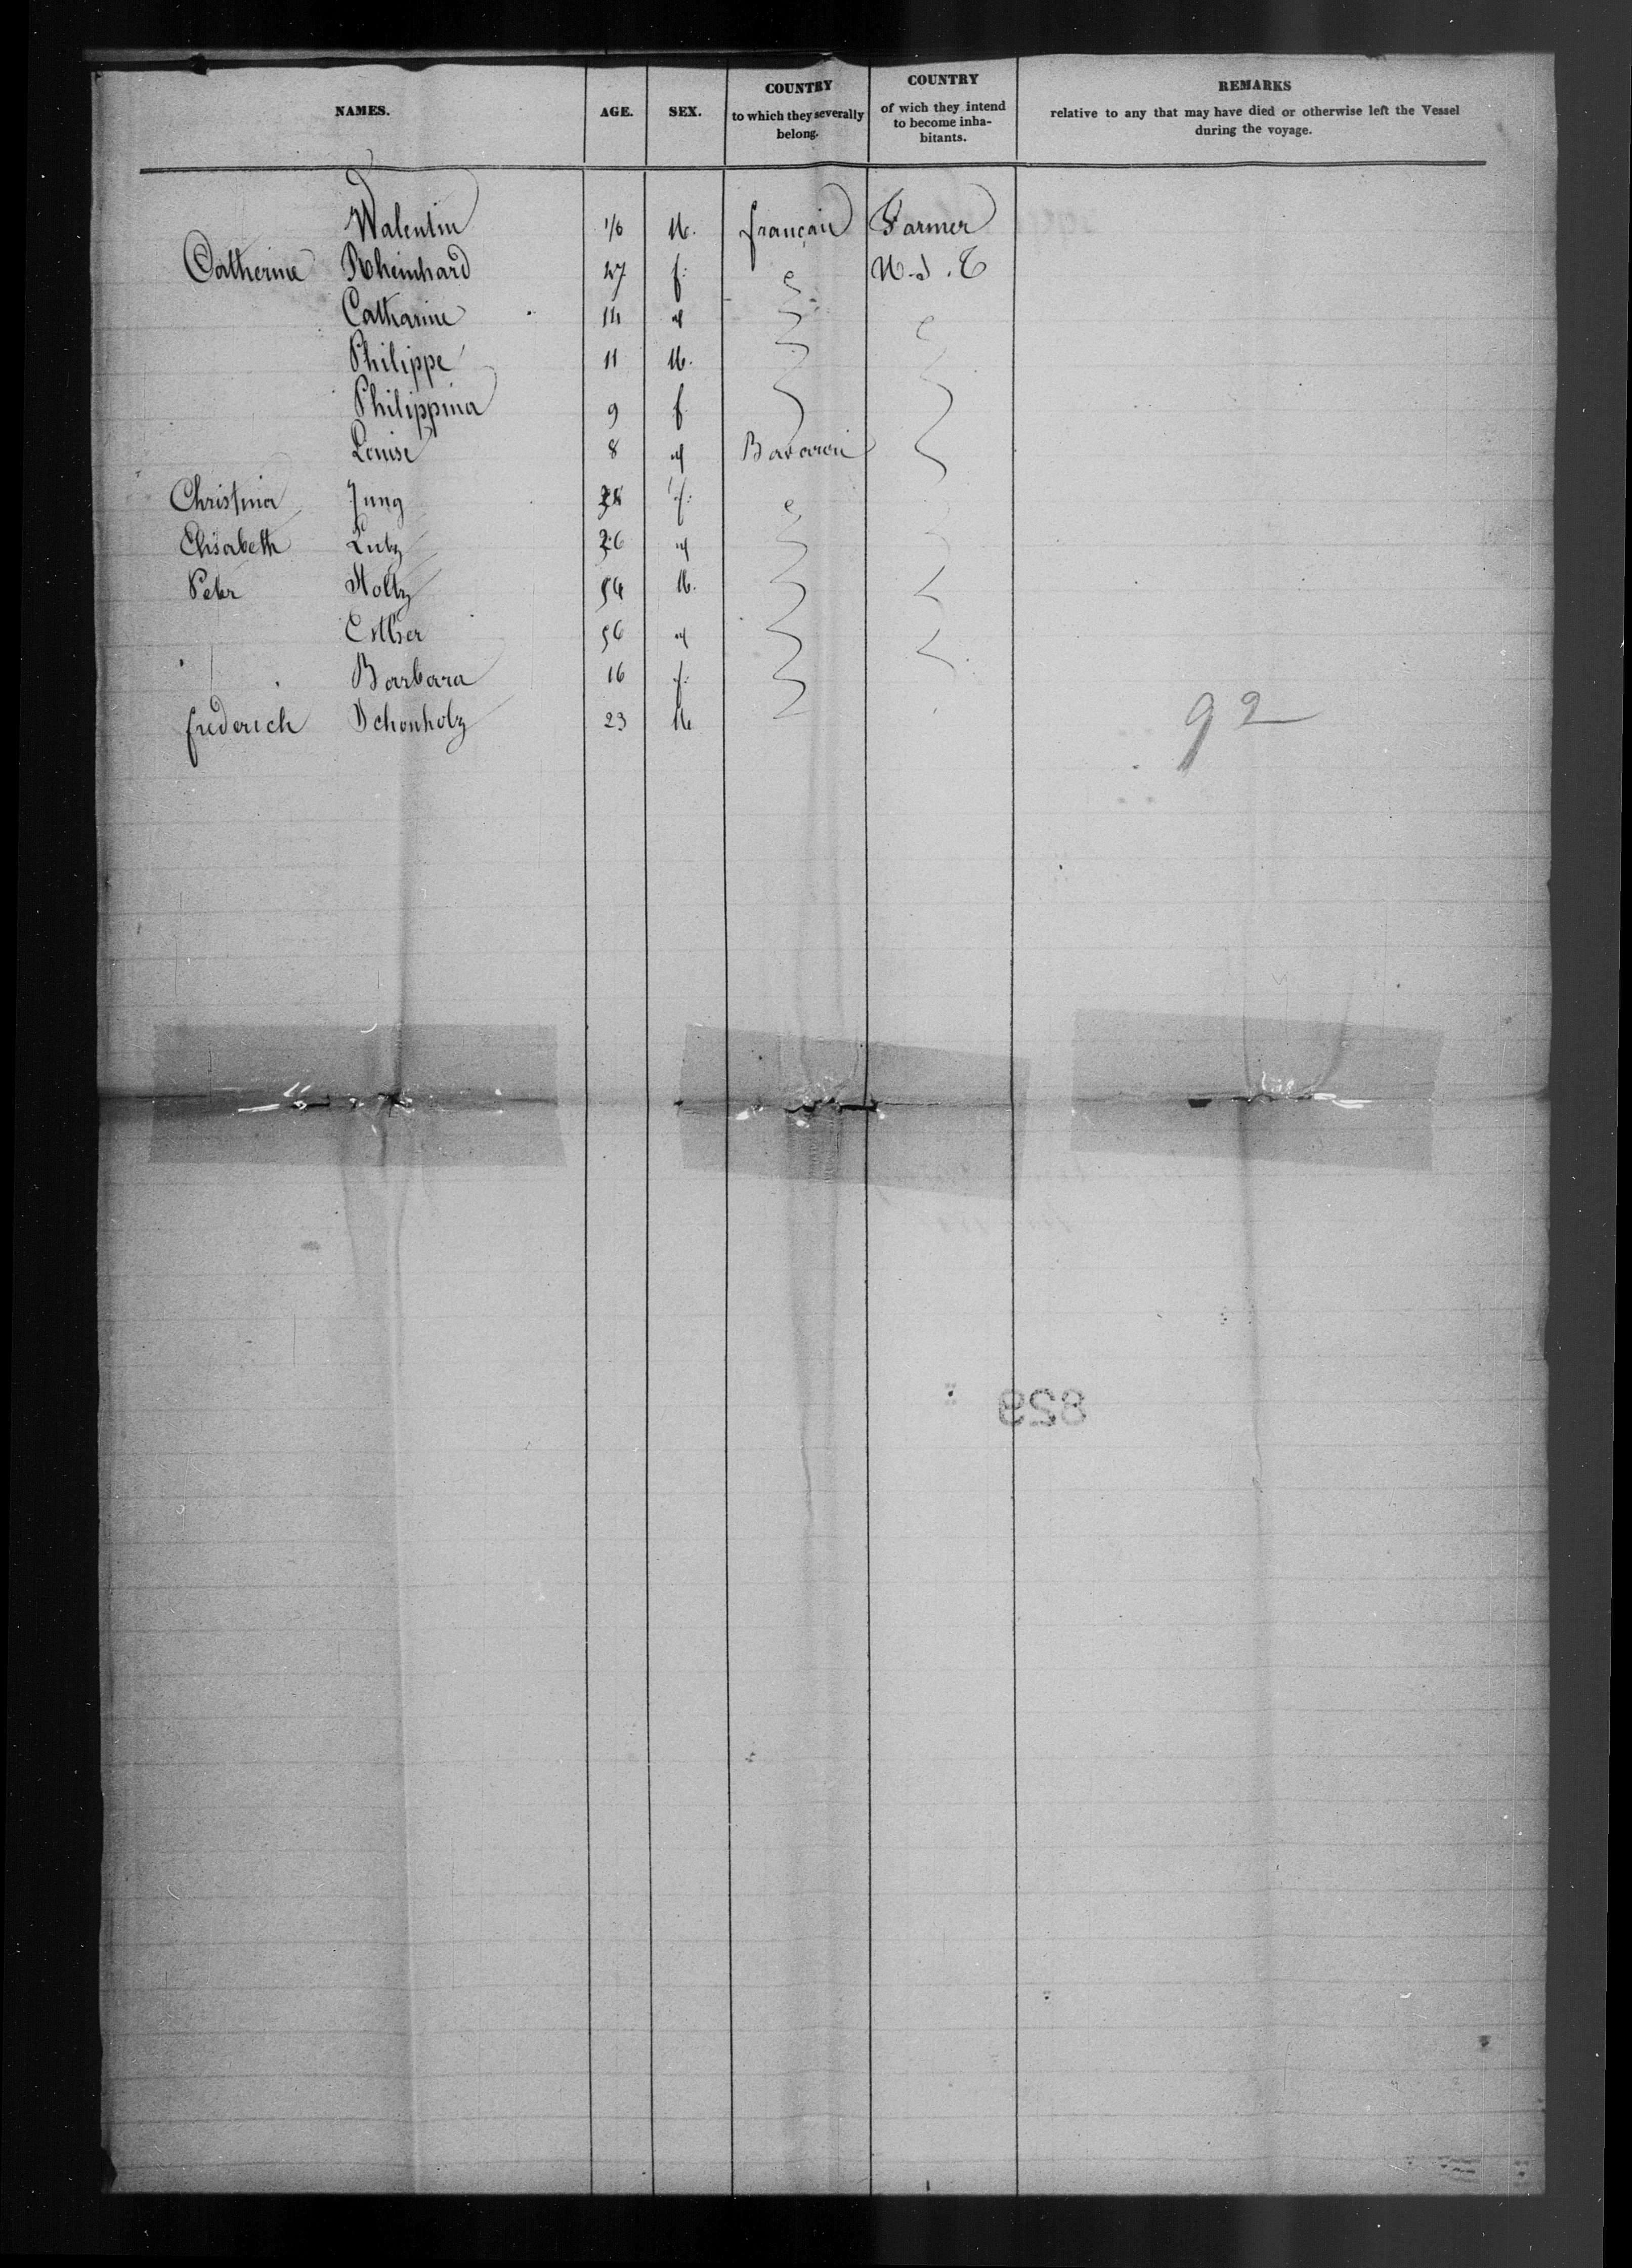 NAMES. AGE. SEX. COUNTRY to which they severally belong. COUNTRY of wich they intend to become inhabitants. REMARKS relative to any that may have died or otherwise left the Vessel during the voyage.
Walentin 1/6 M. français Farmer
Catherine Rheinhard 47 f.
Catharine 14 "
Philippe 11 M.
Philippina 9 f
Louise 8 " Bavarori
Christina Jung f.
Elisabeth Lutz 26 "
Peter Stoltz 54 M.
Esther 56 "
Barbara 16 f.
frederich Schonholz 23 M
92
829